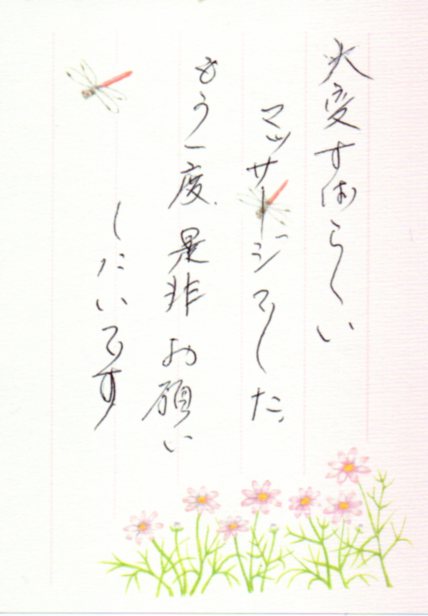 大変すばらしい
マッサージでした、
もう一度、是非お願い
したいです